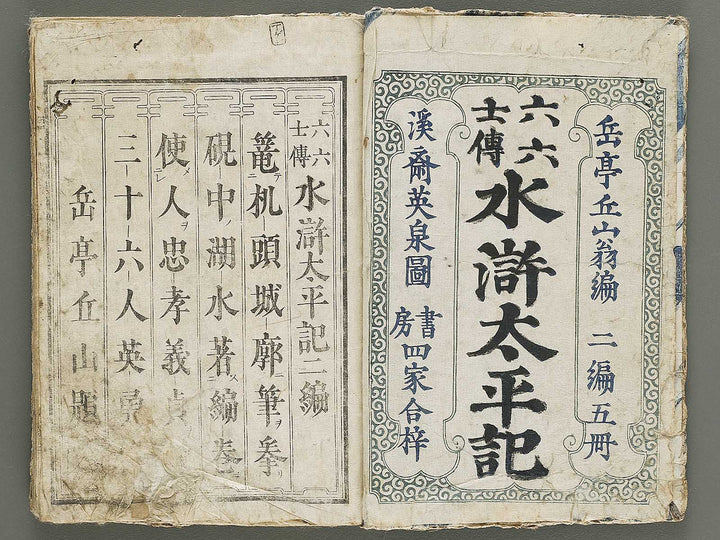 岳亭丘山翁編 二編五冊
六六
士傳
水滸太平記
溪齋英泉圖
書
房
四家合梓
六六
士傳
水滸太平記二編
篭机頭城廓筆ヲ拳
硯中ノ湖水著編巻
使人ヲ忠孝義貞
三十六人英
岳亭丘山題